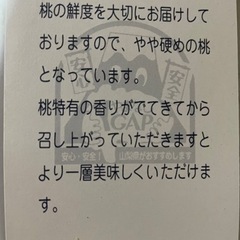 桃の鮮度を大切にお届けして
おりますので、やや硬めの桃
となっています。
桃特有の香りがでてきてから
召し上がっていただきますと
より一層美味しくいただけま
す。
安心
安全
GAP
安心・安全！ 山梨県がおすすめします